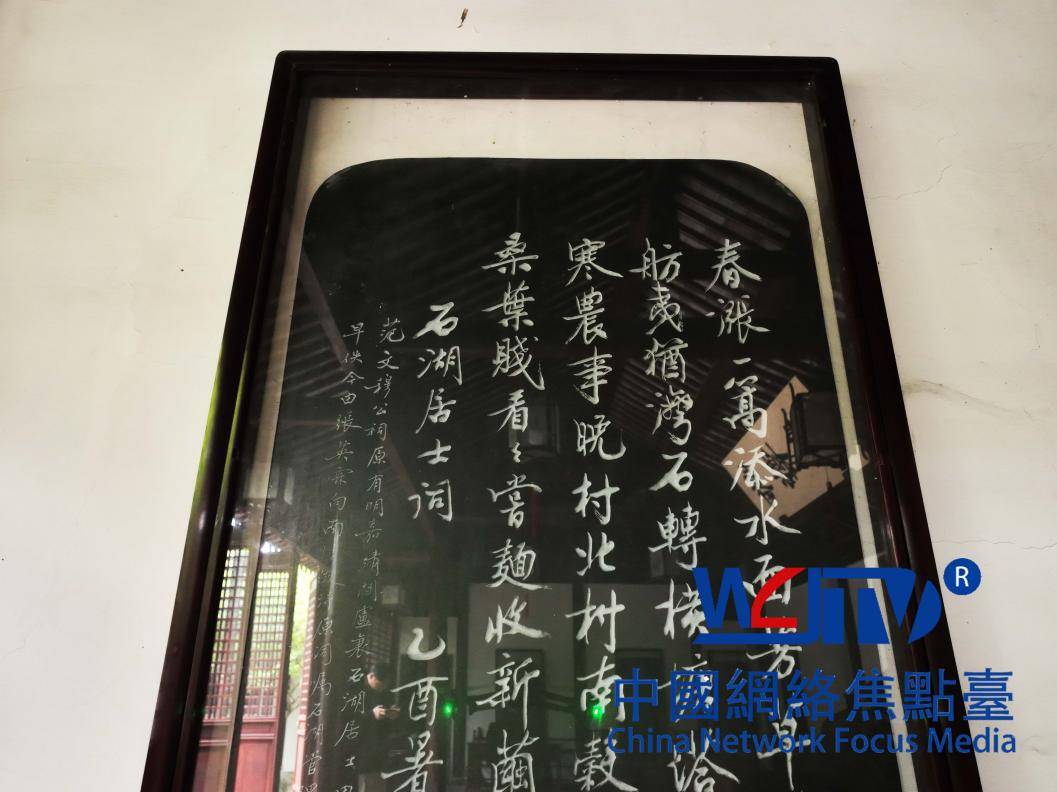 春漲一篙添水面芳草
舫夷猶灣百轉橫塘塔
寒農事晚村北村南穀
桑葉賤看〻嘗麵收新繭
石湖居士词 乙酉暑
范文穆公祠原有明嘉靖間盧襄石湖居士
早佚今由張英霖向南
WCTV®
中國網絡焦點臺
China Network Focus Media